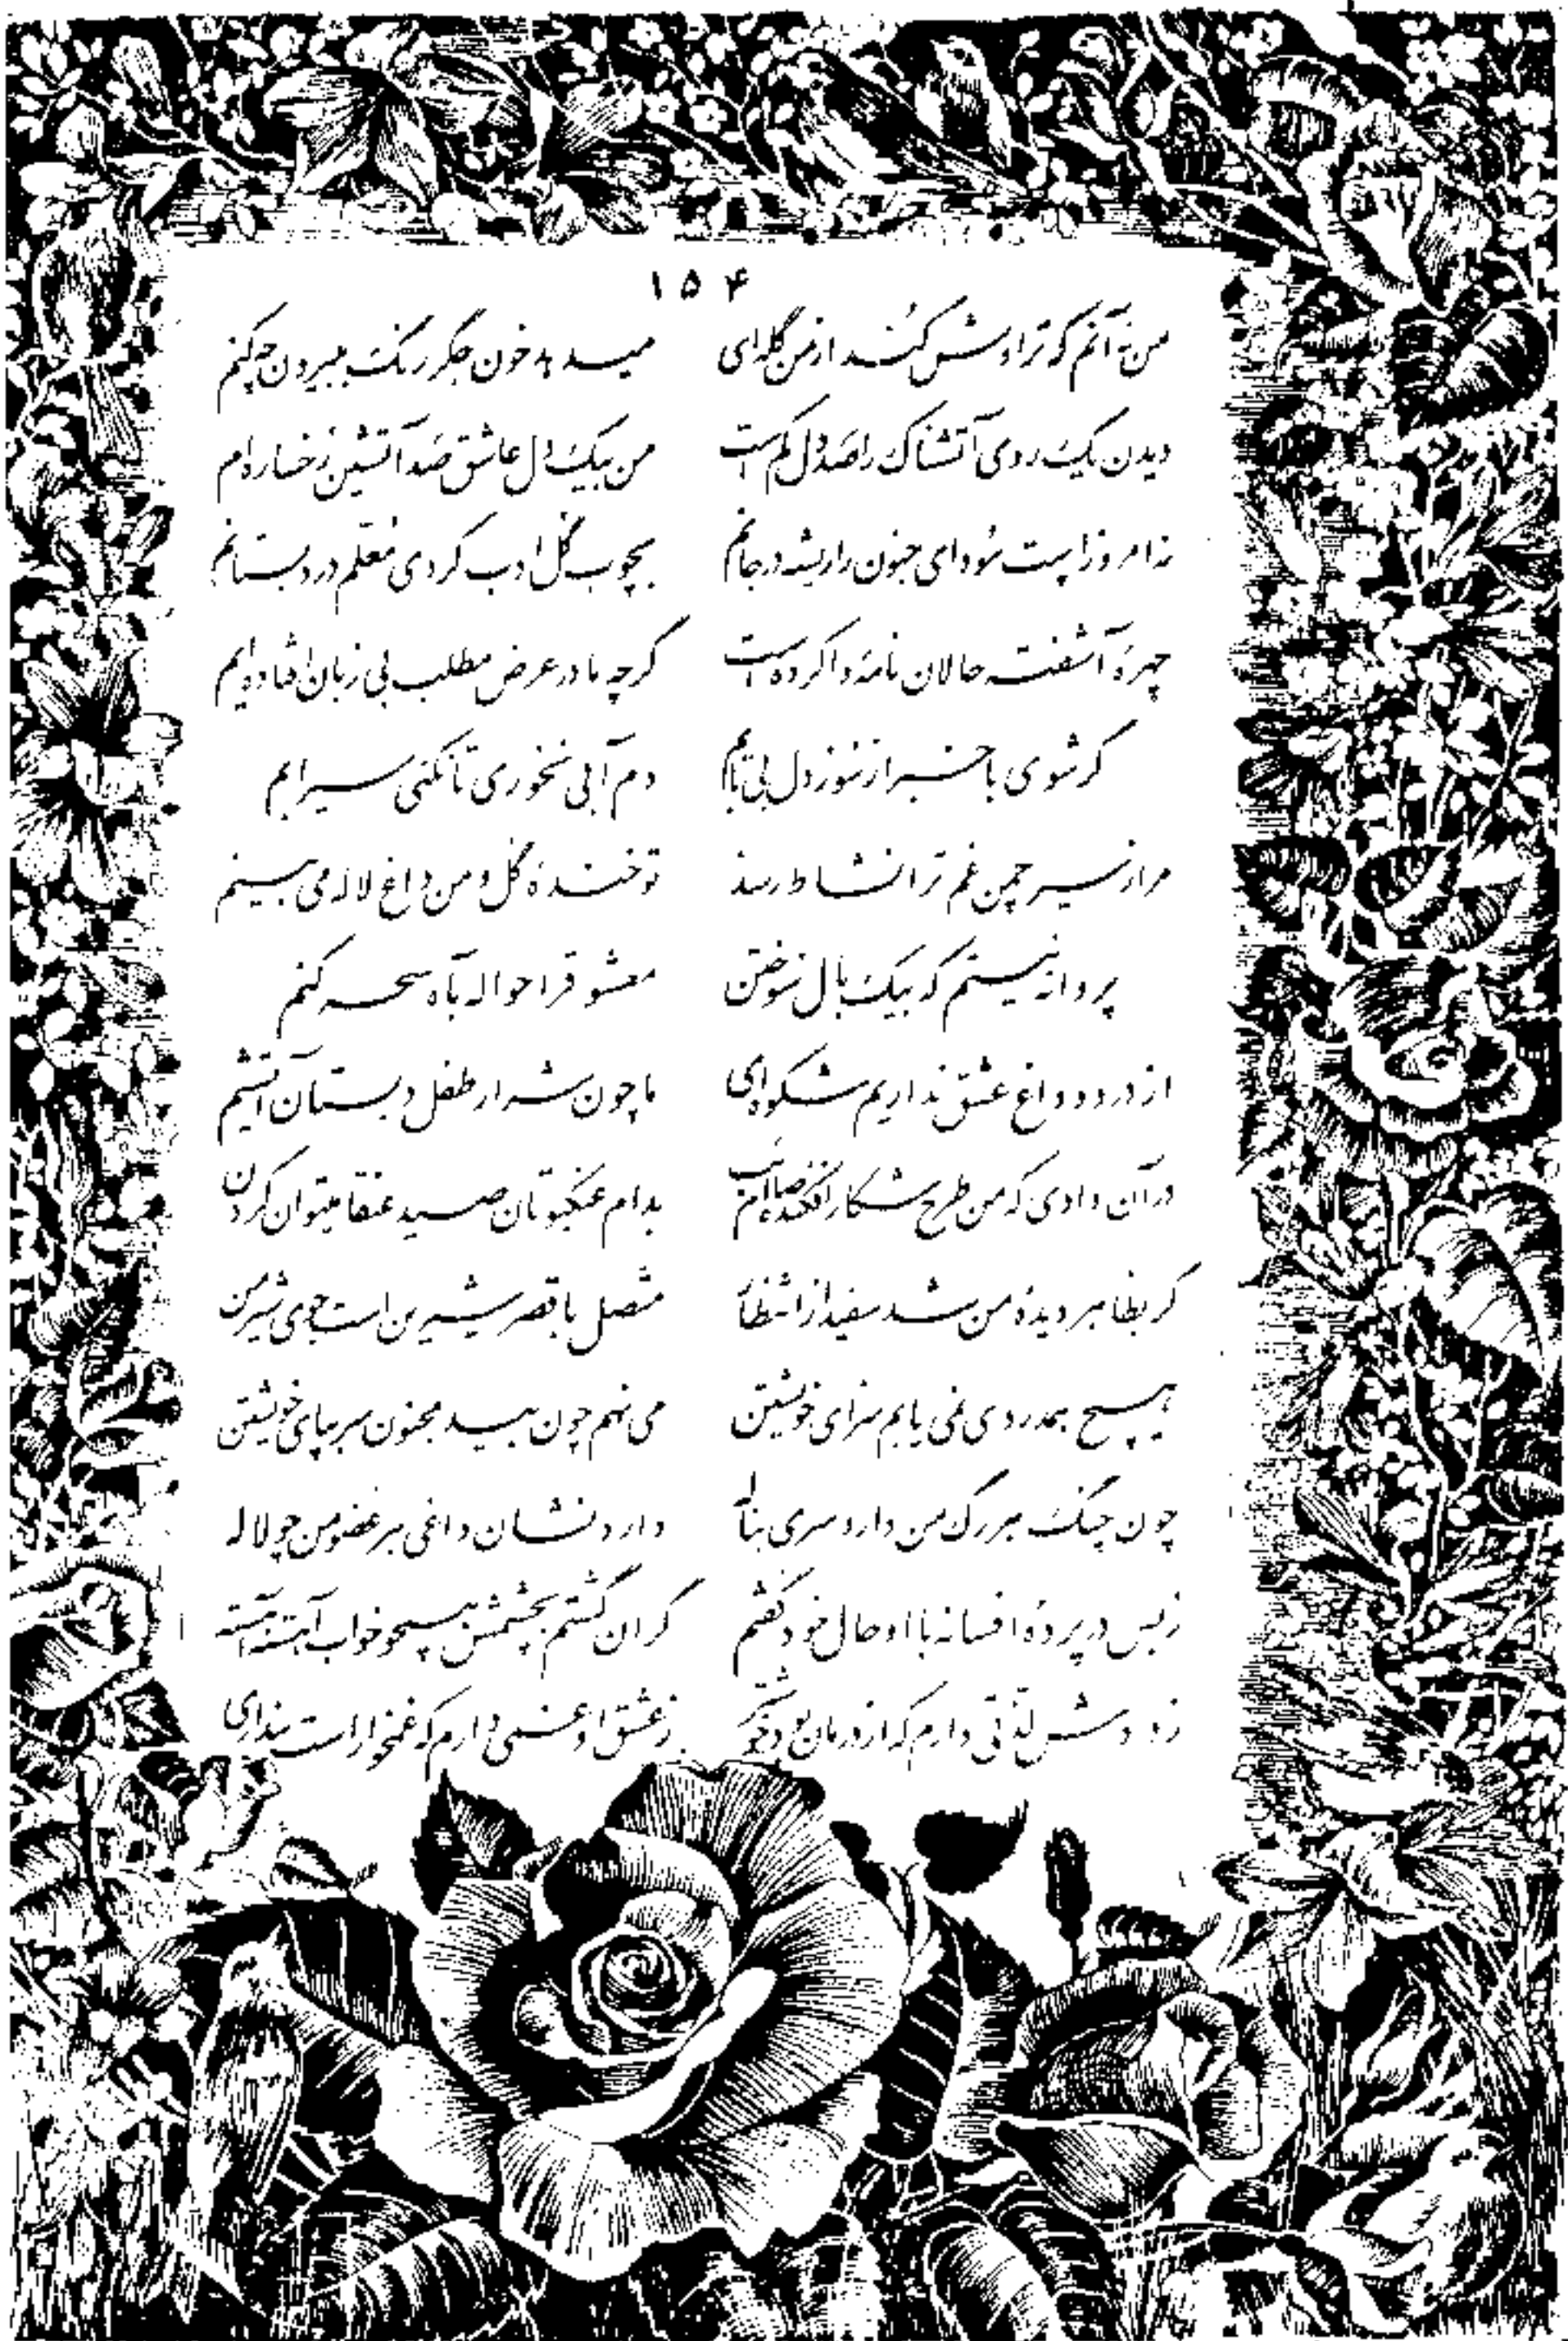 ۱۵۴
من نه آنم که تراوش کند از من گله‌ای    میدهد خون جگر رنگ ببیرون چکنم
دیدن یک روی آتشناک را صد دل کم است    من بیک دل عاشق صد آتشین رخساره‌ام
نه امروز است سودای جنون را ریشه در جانم    بچوب گل ادب کردی معلم در دبستانم
چهرهٔ آشفته حالان نامهٔ وا کرده است    گرچه ما در عرض مطلب بی زبان افتاده‌ایم
گر شوی با خبر از سوز دل بی تابم    دم آبی نخوری تا نکنی سیرابم
مرا ز سیر چمن غم ترا نشاط رسد    تو خندهٔ گل و من داغ لاله می بینم
پروانه نیستم که بیک بال سوختن    معشوق را حواله بآه سحر کنم
از درد و داغ عشق نداریم شکوه‌ای    ما چون شرار طفل دبستان آتشیم
در آن وادی که من طرح شکار افکنده‌ام صائب    بدام عنکبوتان صید عنقا میتوان کردن
گر بظاهر دیدهٔ من شد سفید از انتظار    متصل با قصر شیرین است جوی شیر من
هیچ همدردی نمی یابم سزای خویشتن    می نهم چون بید مجنون سر بپای خویشتن
چون چنگ هر رگ من دارد سری بناله    دارد نشان داغی هر عضو من چو لاله
ز بس در پردهٔ افسانه با او حال خود گفتم    گران گشتم بچشمش همچو خواب آهسته آهسته
ز دردش لذتی دارم که از درمان بود خوشتر    ز عشق او غمی دارم که غمخوار است پنداری